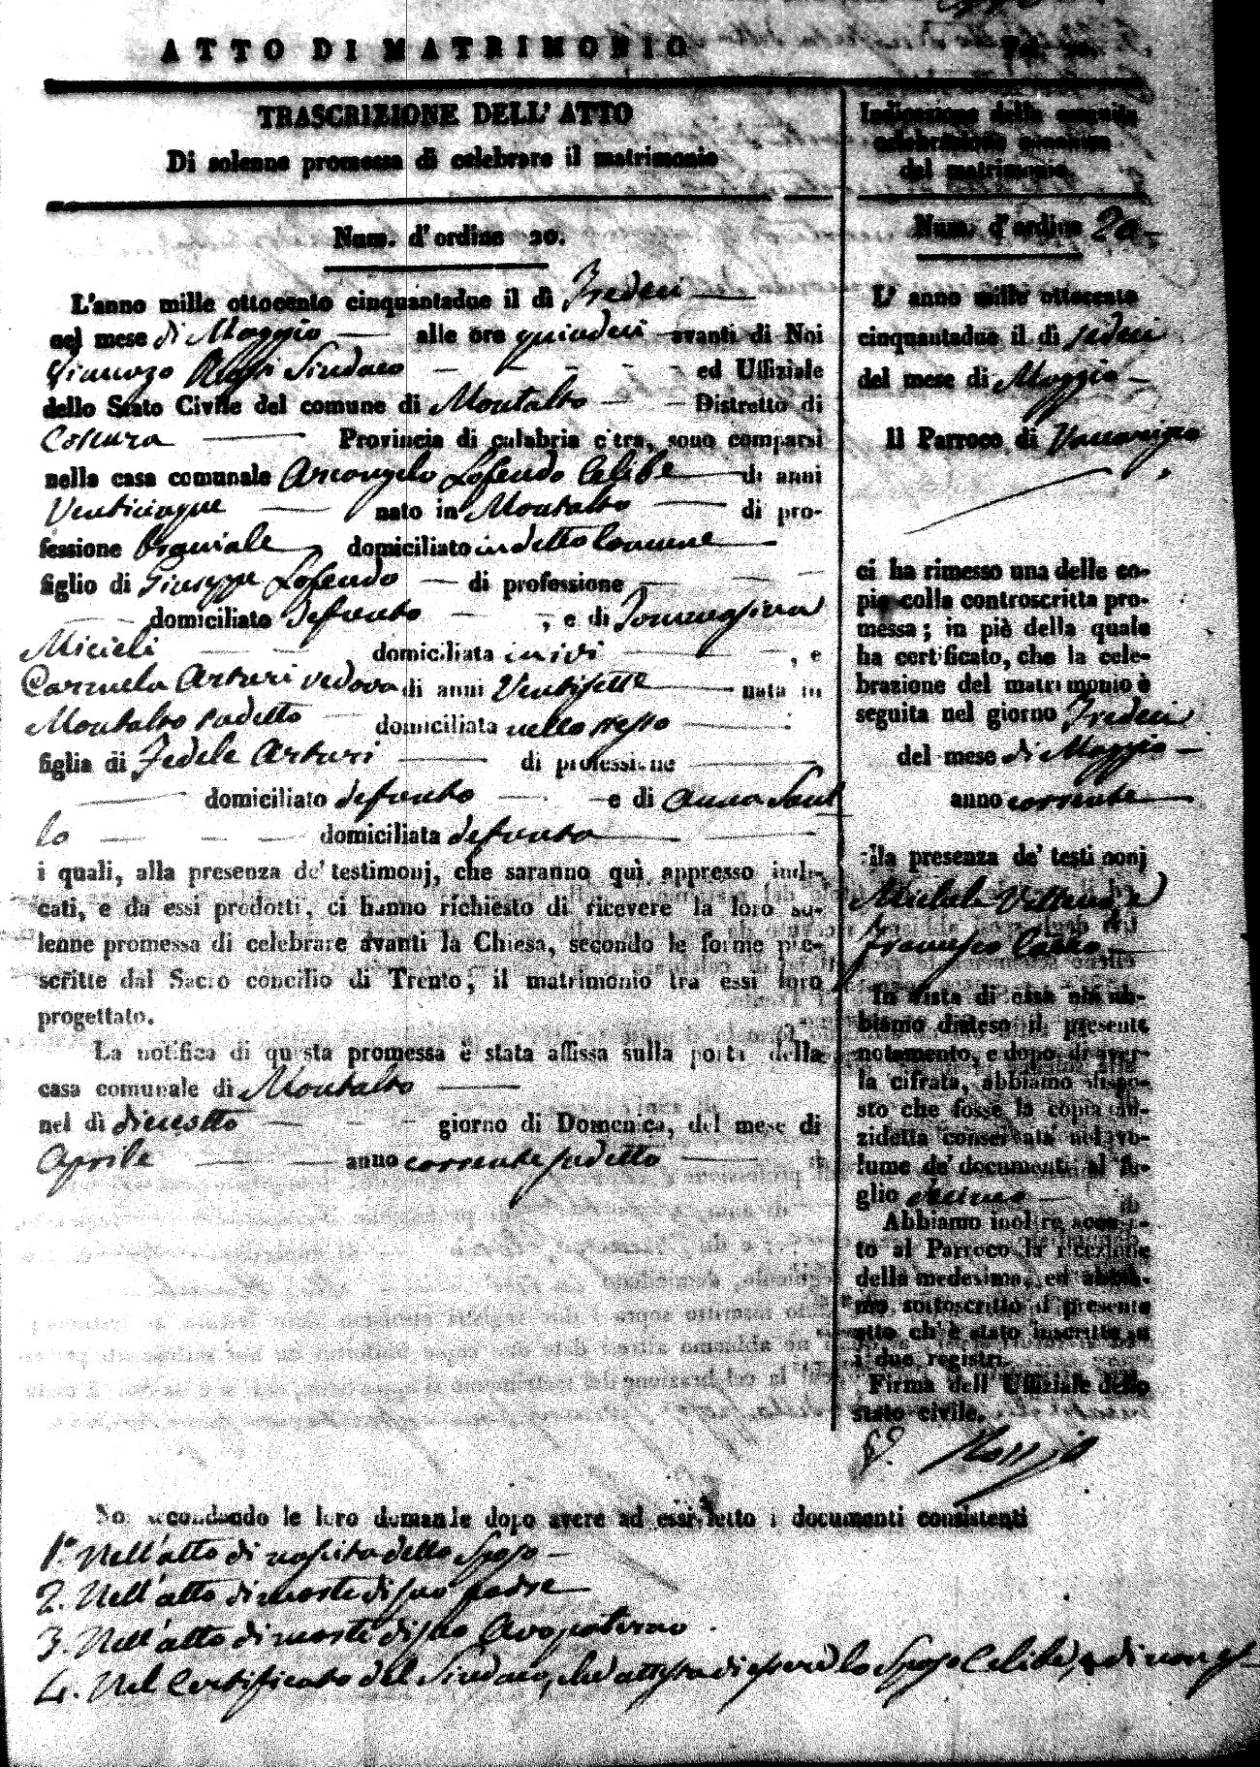 ATTO DI MATRIMONIO
TRASCRIZIONE DELL' ATTO
Di solenne promessa di celebrare il matrimonio
Num. d'ordine 20.
L'anno mille ottocento cinquantadue il dì Tredeci
nel mese di Maggio alle ore quindeci avanti di Noi
Sindaco ed Uffiziale
dello Stato Civile del comune di Montalto Distretto di
Cosenza Provincia di calabria citra, sono comparsi
nella casa comunale Arcangelo Lofendo Celibe di anni
Venticinque nato in Montalto di pro-
fessione domiciliato in detto Comune
figlio di Giuseppe Lofendo di professione
domiciliato defunto, e di Tommasina
Micieli domiciliata in ivi, e
Carmela Arturi vedova di anni Ventisette nata in
Montalto sudetto domiciliata nello stesso
figlia di Fedele Arturi di professione
domiciliato defunto e di Anna Sant
lo domiciliata defunta
i quali, alla presenza de' testimonj, che saranno quì appresso indi-
cati, e da essi prodotti, ci hanno richiesto di ricevere la loro so-
lenne promessa di celebrare avanti la Chiesa, secondo le forme pre-
scritte dal Sacro concilio di Trento, il matrimonio tra essi loro
progettato.
La notifica di questa promessa è stata affissa sulla porta della
casa comunale di Montalto
nel dì dieciotto giorno di Domenica, del mese di
Aprile anno corrente sudetto
Indicazione della seguita
celebrazione canonica
del matrimonio.
Num. d'ordine 20
L' anno mille ottocento
cinquantadue il dì sedeci
del mese di Maggio
Il Parroco di Vaccarizzo
ci ha rimesso una delle co-
pie colla controscritta pro-
messa; in piè della quale
ha certificato, che la cele-
brazione del matrimonio è
seguita nel giorno Tredeci
del mese di Maggio
anno corrente
alla presenza de' testimonj
Michele e
Francesco
In vista di essa ab-
biamo disteso il presente
notamento, e dopo di aver-
la cifrata, abbiamo dispo-
sto che fosse la copia an-
zidetta conservata nel vo-
lume de' documenti al fo-
glio decimo
Abbiamo inoltre accusa-
to al Parroco la ricezione
della medesima, ed abbia-
mo sottoscritto il presente
atto ch' è stato inscritto su
i due registri.
Firma dell' Uffiziale dello
stato civile.
Rossi
Noi secondando le loro domande dopo avere ad essi letto i documenti consistenti
1.° Nell'atto di nascita dello Sposo
2. Nell'atto di morte di suo padre
3. Nell'atto di morte di suo Avo paterno
4. Nel Certificato del Sindaco, che attesta di essere lo Sposo Celibe, e di non